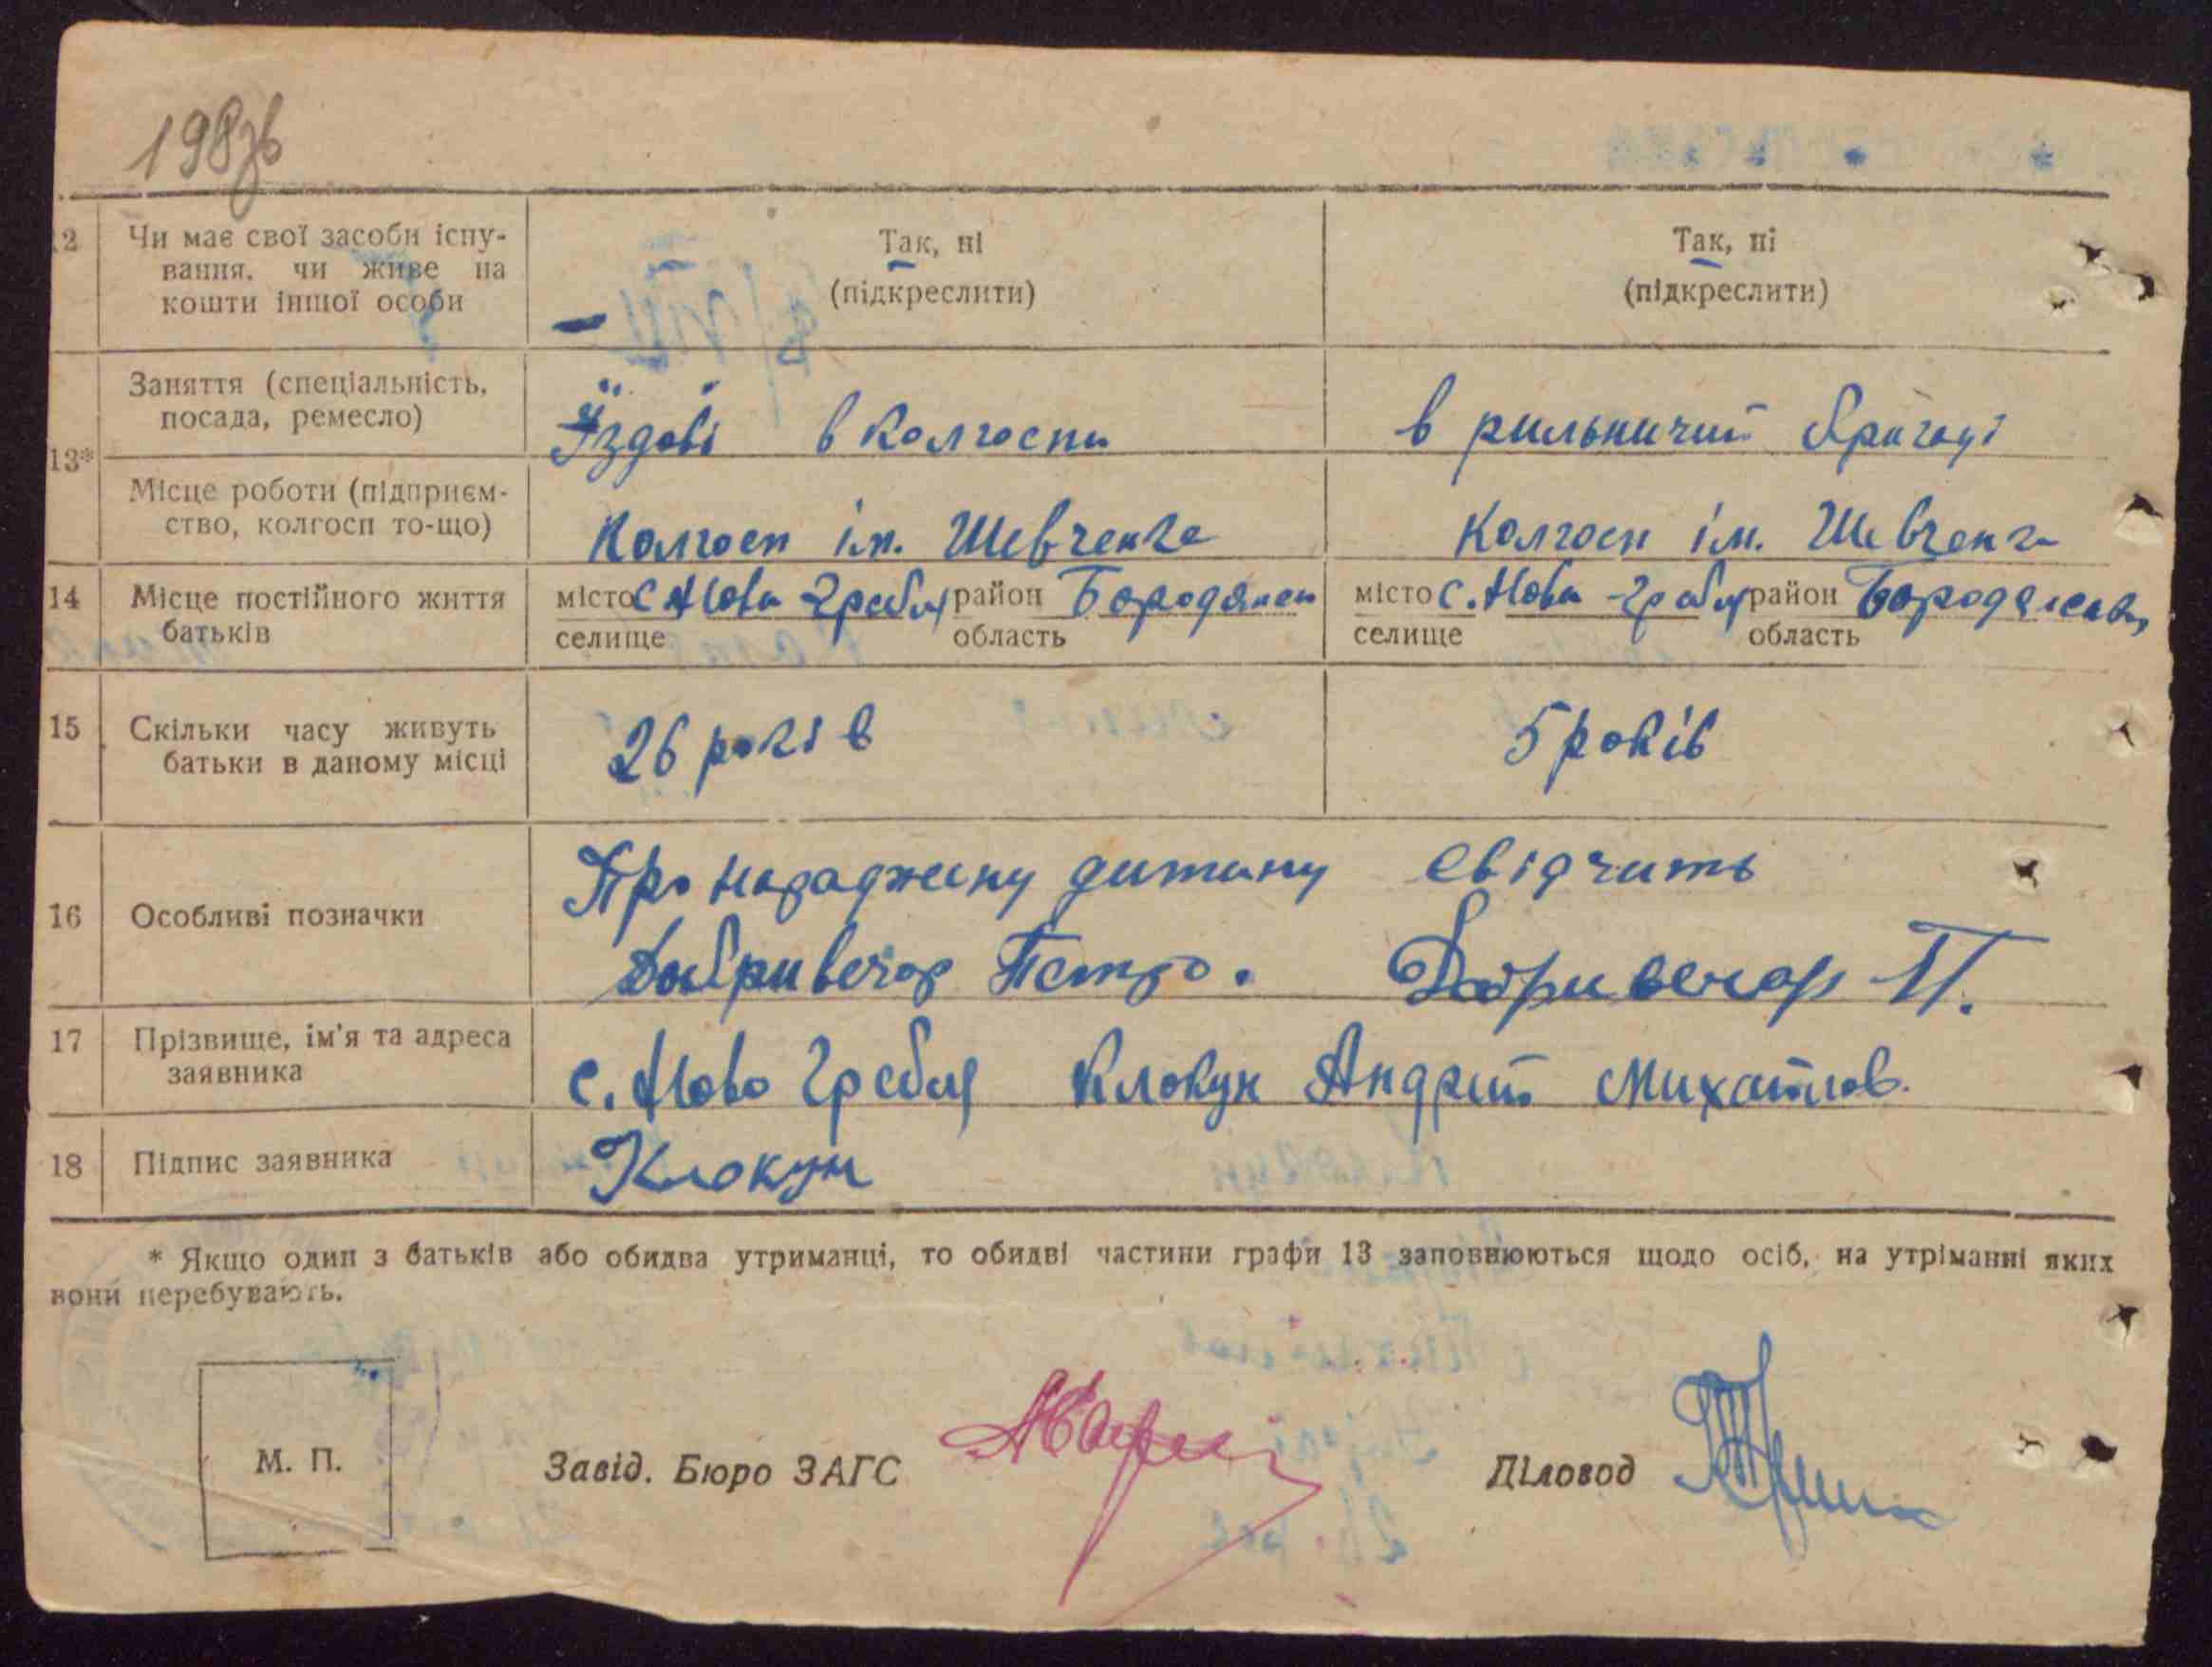 198зв
12 Чи має свої засоби існу-
вання, чи живе на
кошти іншої особи
Так, ні
(підкреслити)
Так, ні
(підкреслити)
13* Заняття (спеціальність,
посада, ремесло)
Їздові в колгоспи
в рильничий бригаді
Місце роботи (підприєм-
ство, колгосп то-що)
Колгосп ім. Шевченка
Колгосп ім. Шевченка
14 Місце постійного життя
батьків
місто с. Нова-Гребля район Бородянсь
селище область
місто с. Нова-Гребля район
селище область
15 Скільки часу живуть
батьки в даному місці
26 років
5 років
16 Особливі позначки
Про народжену дитину свідчить
Добривечор Петро. Добривечор П.
17 Прізвище, ім'я та адреса
заявника
с. Ново Гребля Клокун Андрій Михайлов.
18 Підпис заявника
Клокун
* Якщо один з батьків або обидва утриманці, то обидві частини графи 13 заповнюються щодо осіб, на утріманні яких
вони перебувають.
М. П.
Завід. Бюро ЗАГС
Діловод